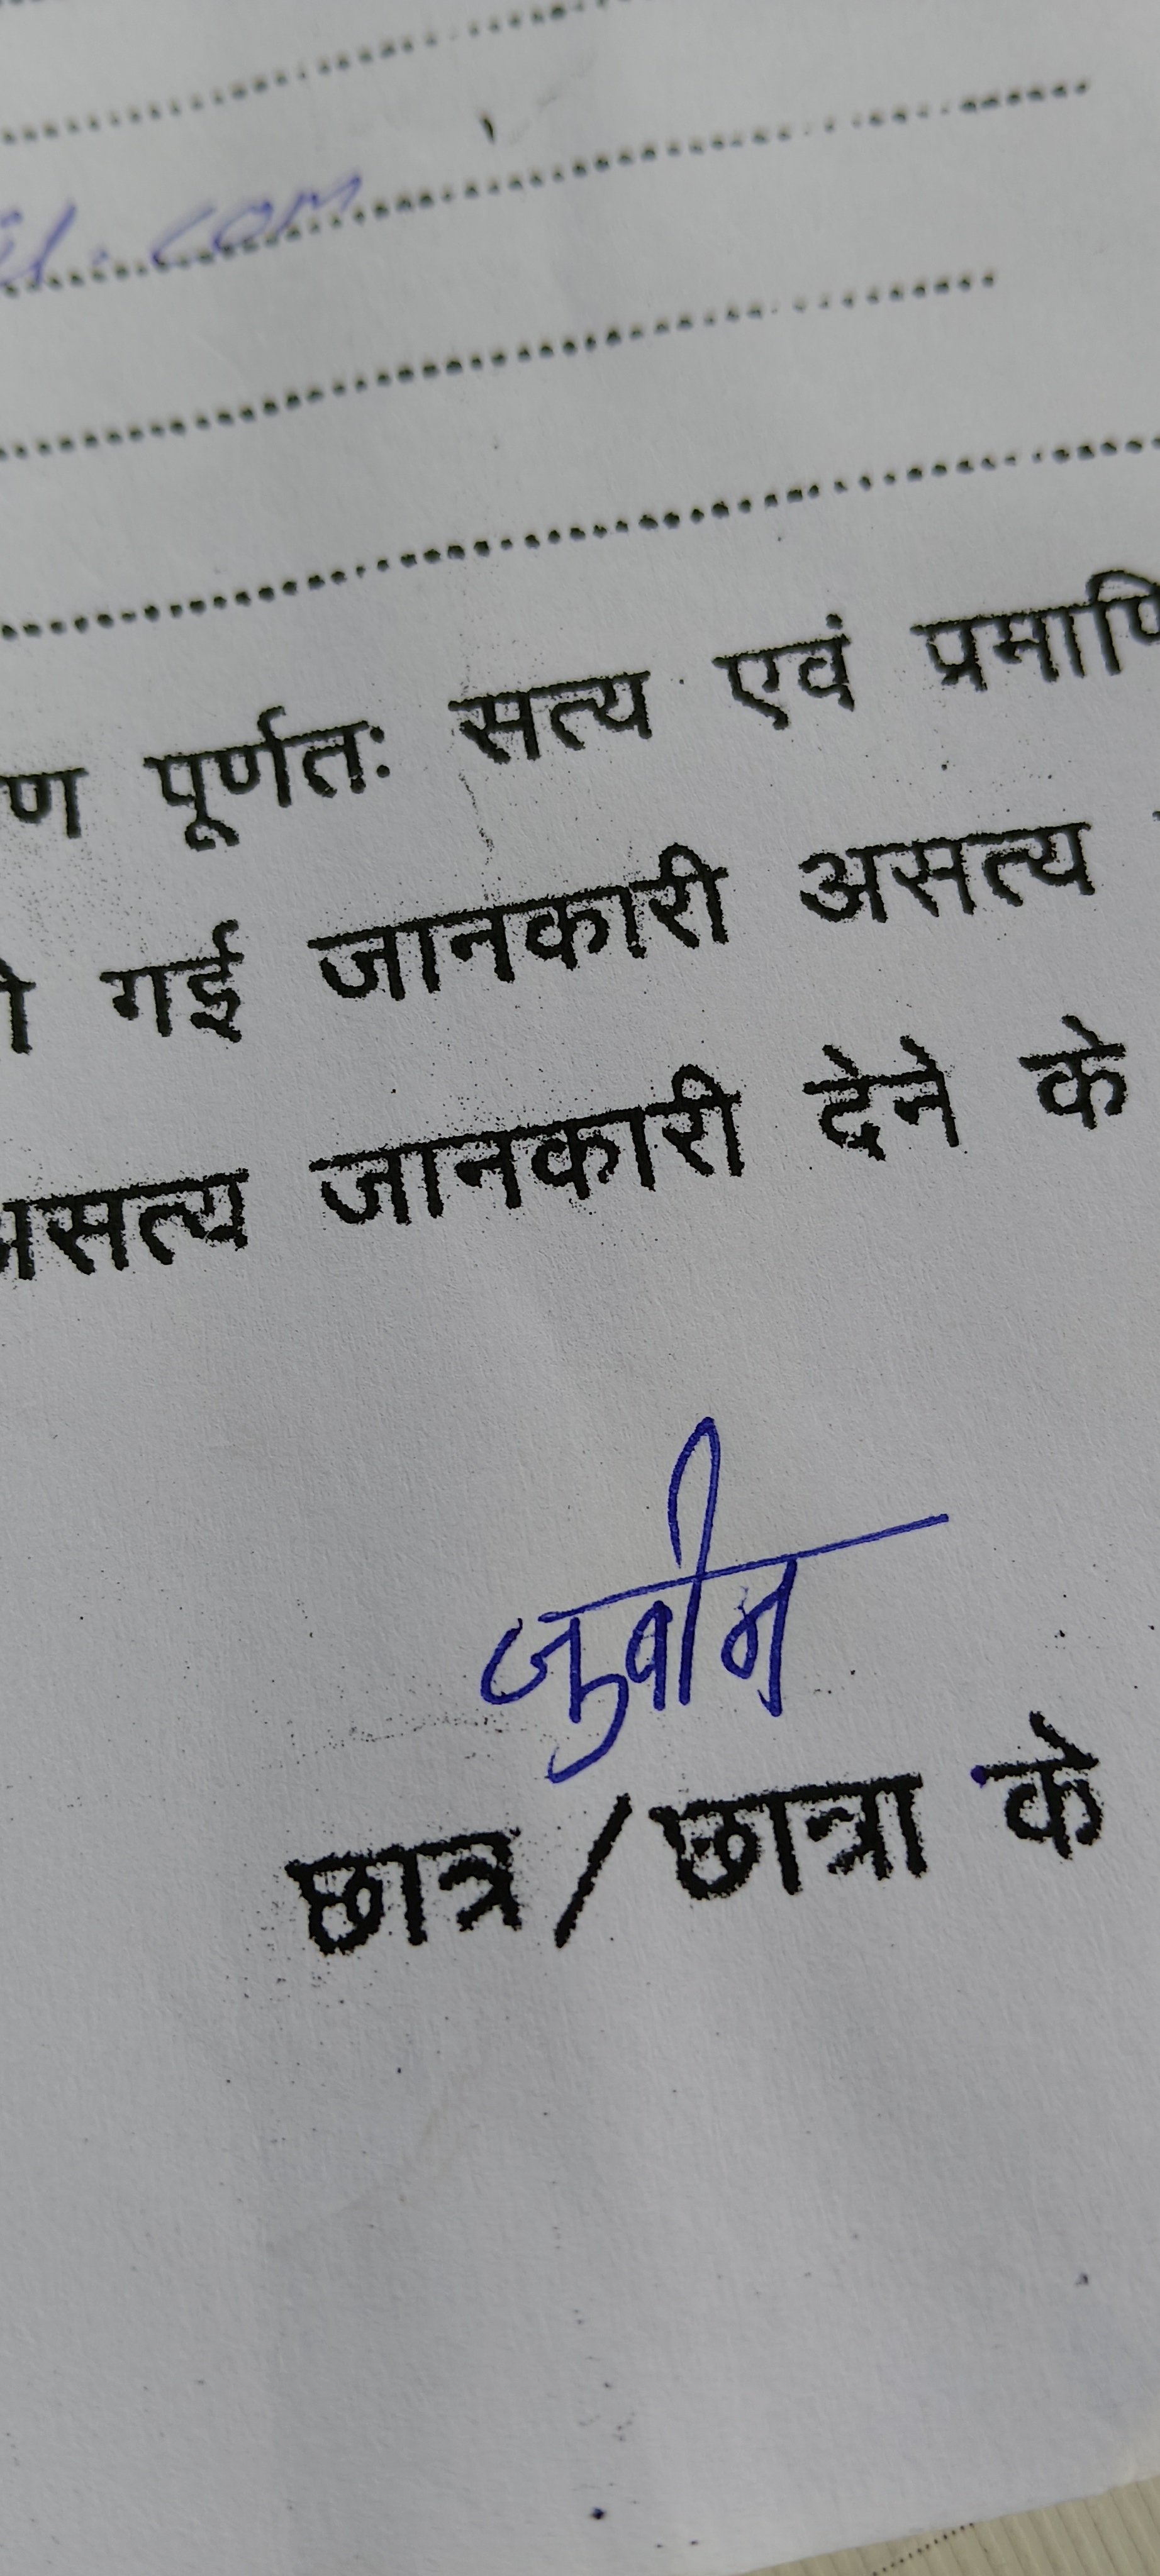 il.com
ण पूर्णतः सत्य एवं प्रमाणि
गई जानकारी असत्य
असत्य जानकारी देने के
जुवीन
छात्र/छात्रा के